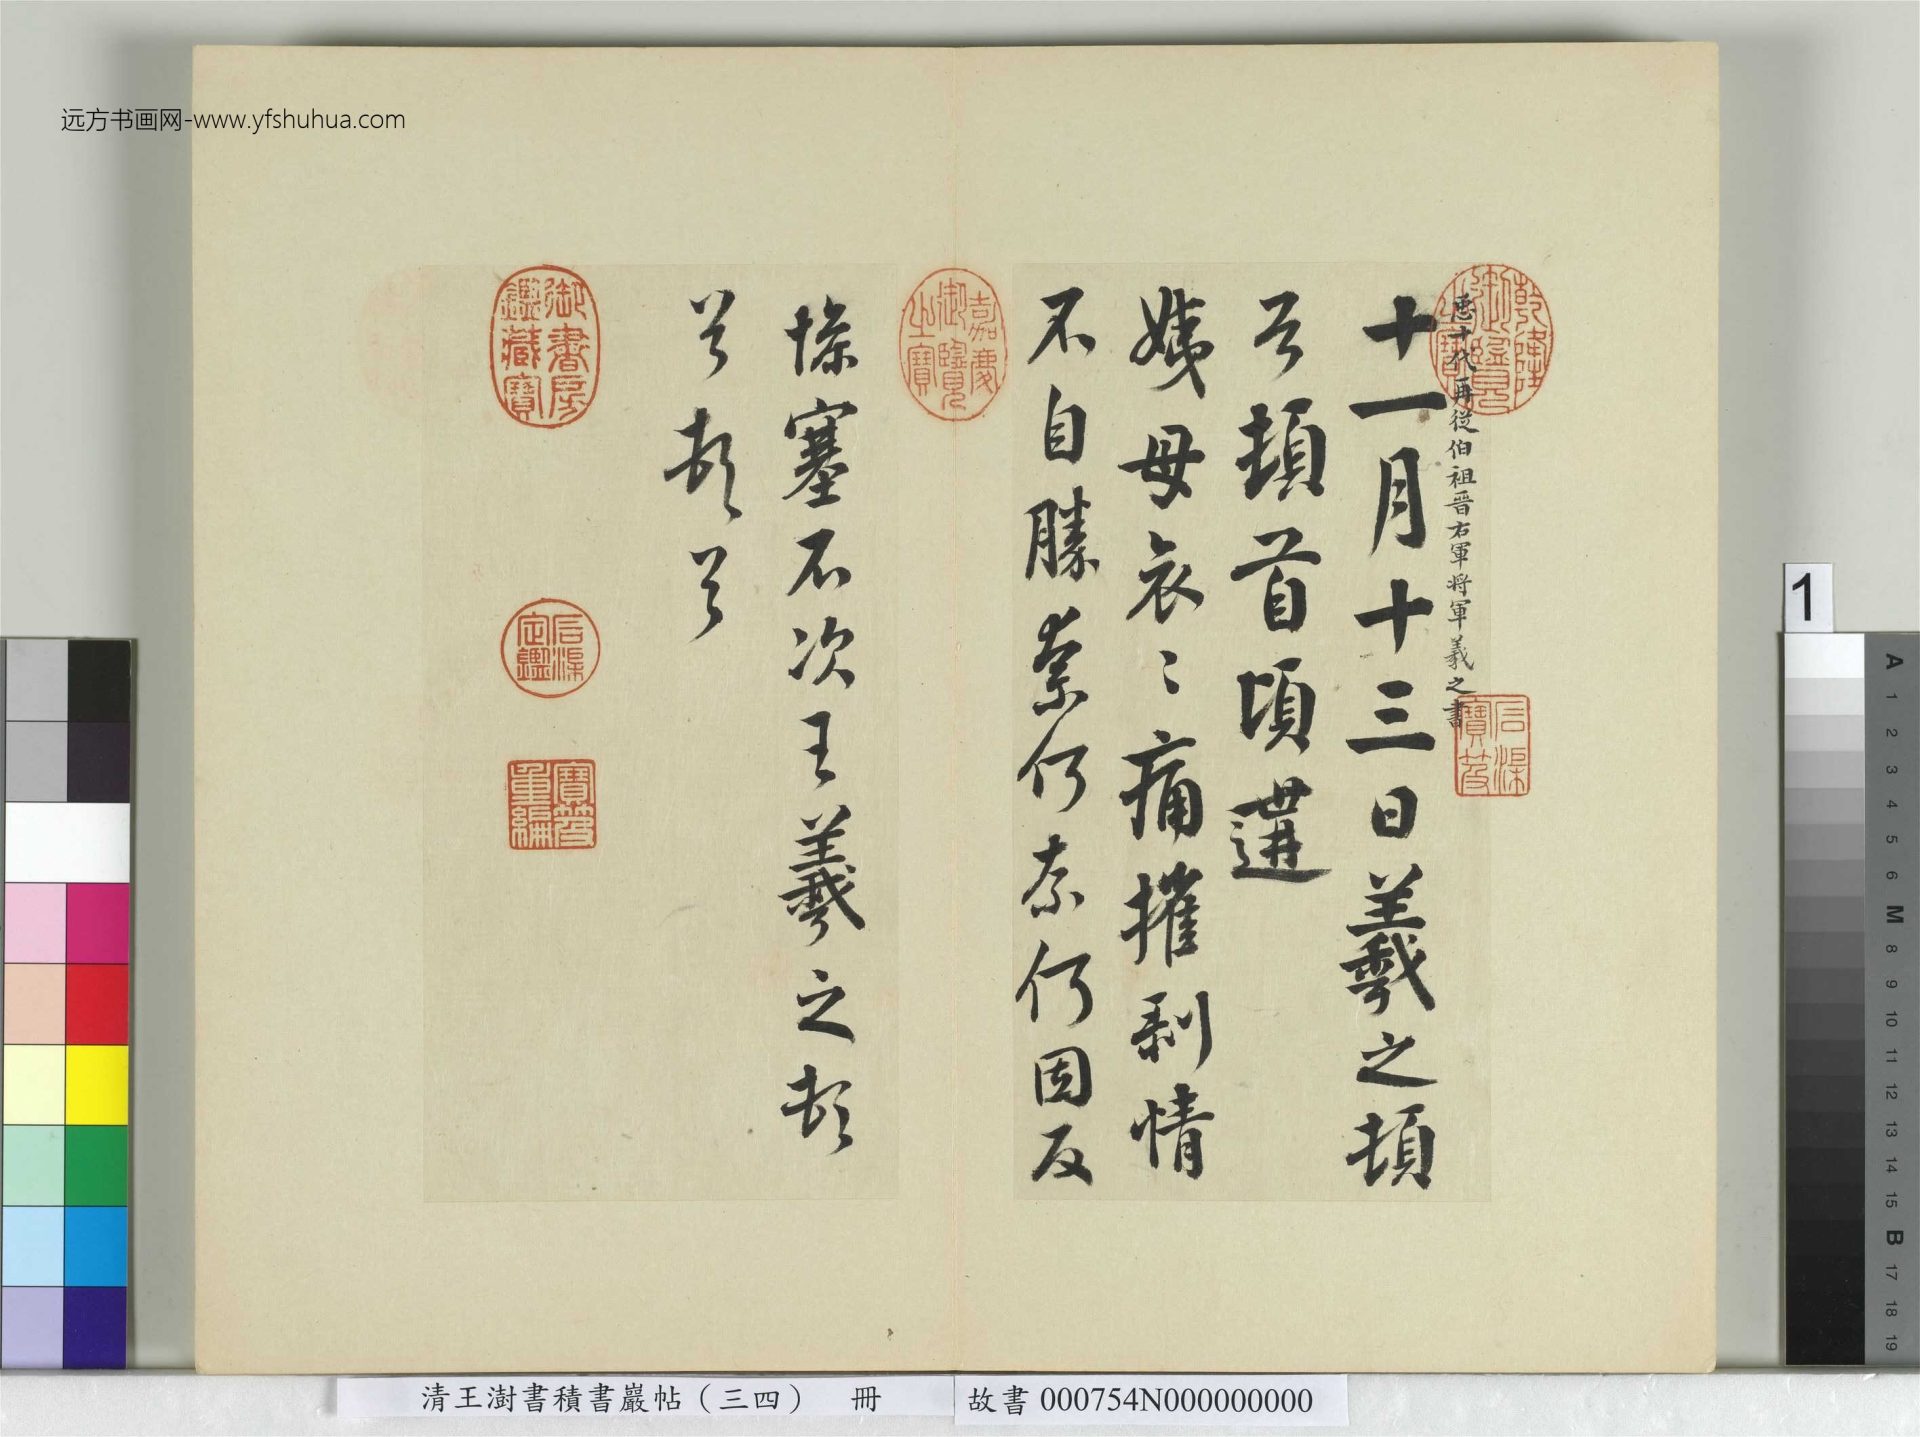 远方书画网-www.yfshuhua.com
臣十代再從伯祖晉右軍將軍羲之書
十一月十三日羲之頓
首頓首頃遘
姨母哀哀痛摧剝情
不自勝奈何奈何因反
慘塞不次王羲之頓
首頓首
乾隆御覽之寶
石渠寶笈
嘉慶御覽之寶
御書房鑑藏寶
石渠定鑑
寶笈重編
1
A
1
2
3
4
5
6
M
8
9
10
11
12
13
14
15
B
17
18
19
清王澍書積書巖帖（三四） 冊
故書 000754N000000000